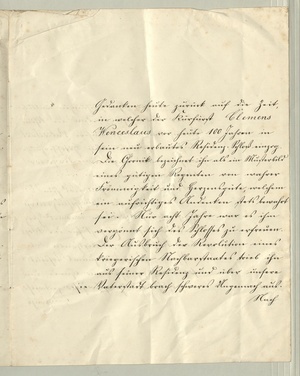 Gedanken heute zurück auf die Zeit,
in welcher der Kurfürst Clemens
Wenceslaus vor heute 100 Jahren in
sein neu erbautes Residenz-Schloß einzog.
Die Chronik bezeichnet ihn als ein Musterbild
eines gütigen Regenten von wahrer
Frömmigkeit und Herzensgüte, welchem
ein aufrichtiges Andenken stets bewahrt
sei. Nur acht Jahre war es ihm
vergönnt sich des Schlosses zu erfreuen.
Der Ausbruch der Revolution eines
kriegerischen Nachbarstaates trieb ihn
aus seiner Residenz und über unsere
Vaterstadt brach schweres Ungemach aus.
Nach